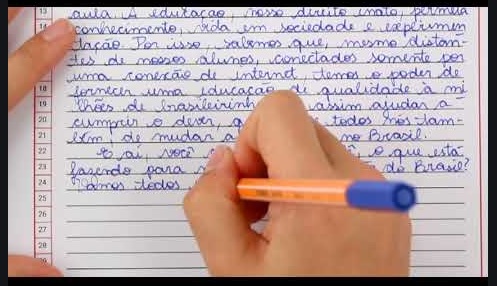 13 aula. A educação, nosso direito inato, permeia
14 conhecimento, vida em sociedade e experimen-
tação. Por isso, sabemos que, mesmo distan-
tes de nossos alunos, conectados somente por
uma conexão de internet, temos o poder de
18 fornecer uma educação de qualidade a mi
19 lhões de brasileirinh assim ajudar a
20 cumprir o dever, q e todos nós tam-
21 bém, de mudar a no Brasil.
22 E aí, você o que está
23 fazendo para do Brasil?
24 Vamos todos
25
26
27
28
29